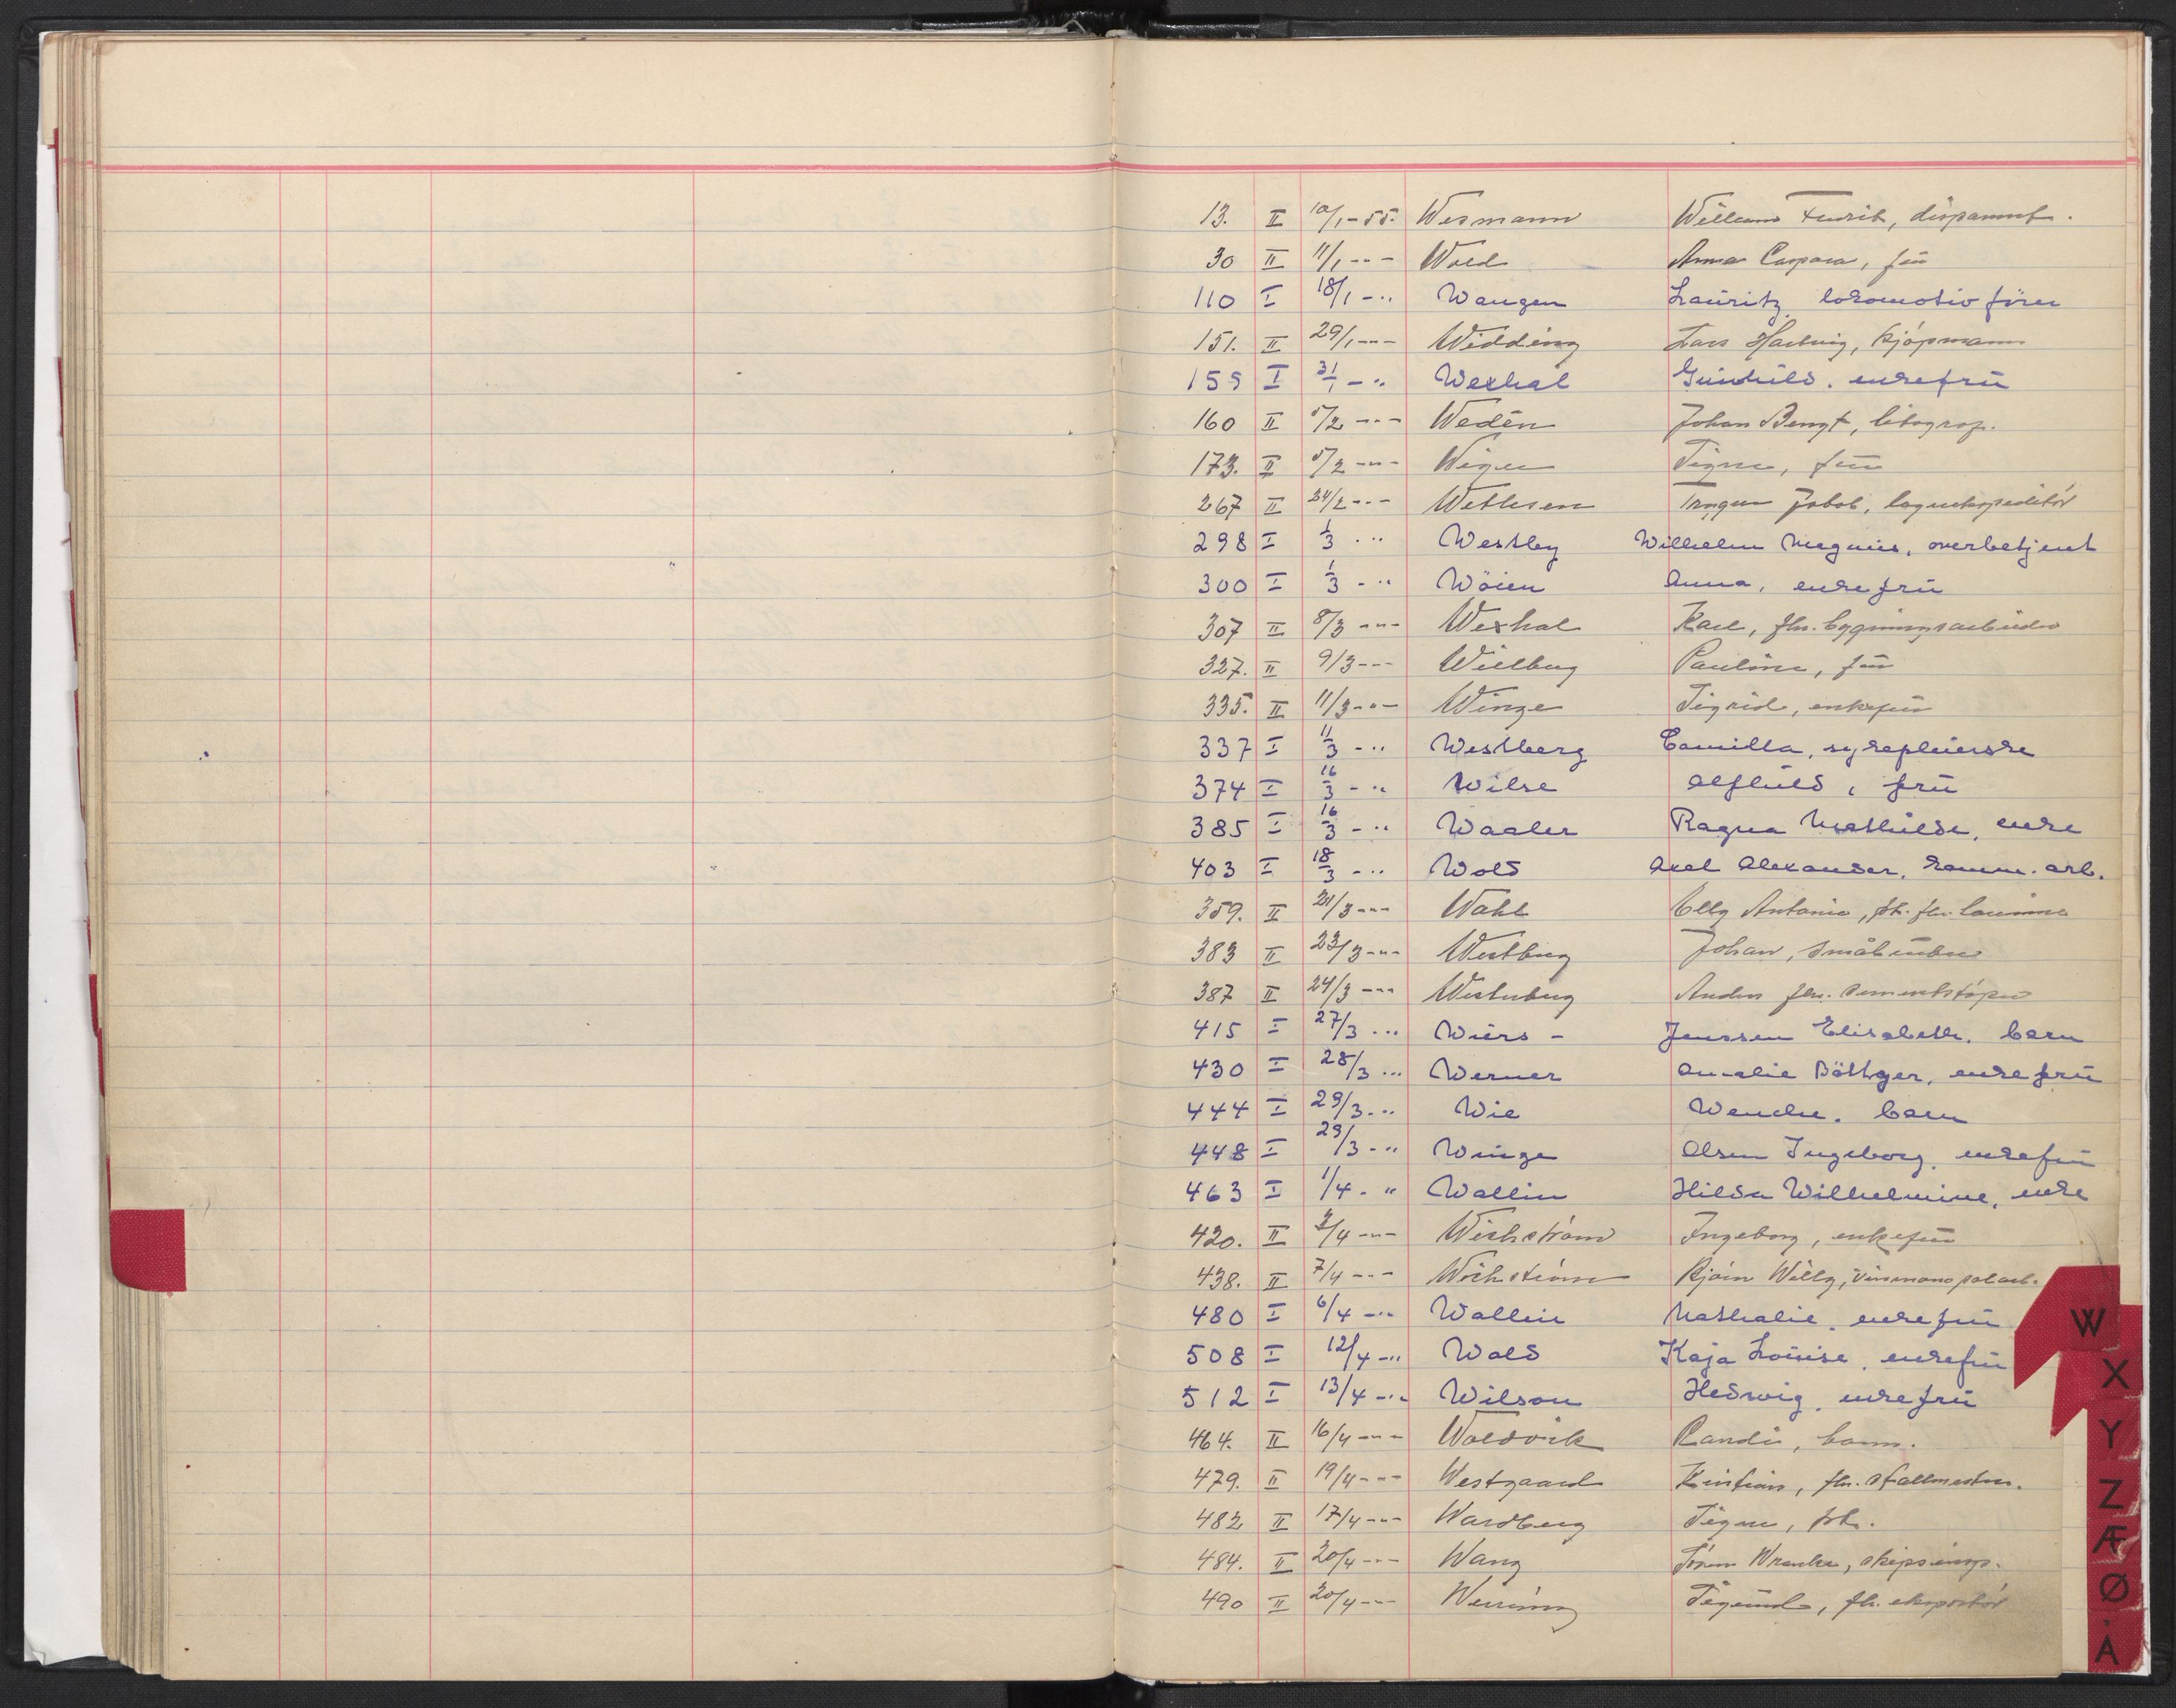 13. II 10/1-55. Wesmann William Fredrik, disponent.
30 II 11/1 -"- Wold Anna Caspara, frü
110 I 18/1 -" Wangen Lauritz, lokomotivförer
151. II 29/1 -"- Widding Lars Hartvig, kjøpmann
159 I 31/1 -" Wexhal Gunhild. enkefrü
160 II 5/2 -"- Wedén Johan Bengt, litograf.
173. II 5/2 -"- Wiger Signe, frü
267 II 24/2 -"- Wetlesen Trygve Jakob, lagerekspeditör
298 I 1/3 -" Westby Wilhelm Magnus, overbetjent
300 I 1/3 -" Wöien Anna, enkefrü
307 II 8/3 -"- Wexhal Karl, fhv. bygningsarbeider
327. II 9/3 -"- Willberg Pauline, frü
335. II 11/3 -"- Winge Sigrid, enkefrü
337 I 11/3 -" Westberg Camilla, sykepleierske
374 I 16/3 -" Wilse Alfhild, frü
385 I 16/3 -" Waaler Ragna Mathilde, enke
403 I 18/3 -" Wold Axel Alexander, komm. arb.
359. II 21/3 -"- Wahl Elly Antonie, frk. fhv.
383 II 23/3 -"- Westberg Johan, småbruker
387 II 24/3 -"- Westerberg Anders fhv. sementstøper
415 I 27/3 -" Wiers - Jenssen Elisabeth. barn
430 I 28/3 -" Werner Amalie Böttger, enkefrü
444 I 29/3 -" Wie Wenche. barn
448 I 29/3 -" Winge Olsen Ingeborg. enkefrü
463 I 1/4 -" Wallin Hilda Wilhelmine, enke
420. II 2/4 -"- Wichstrøm Ingeborg, enkefrü
438. II 7/4 -"- Wichstrøm Bjørn Willy, vinmonopolarb.
480 I 6/4 -" Wallin Nathalie. enkefrü
508 I 12/4 -" Wold Kaja Louise. enkefrü
512 I 13/4 -" Wilson Hedvig. enkefrü
464. II 16/4 -"- Woldvik Randi, barn.
479. II 19/4 -"- Westgaard Kristian, fhv. stallmester.
482 II 17/4 -"- Wardberg Signe, frk.
484. II 20/4 -"- Wang Sören, skipsinsp.
490 II 20/4 -"- Sigurd, fhv. eksportör
W
X
Y
Z
Æ
Ø
Å